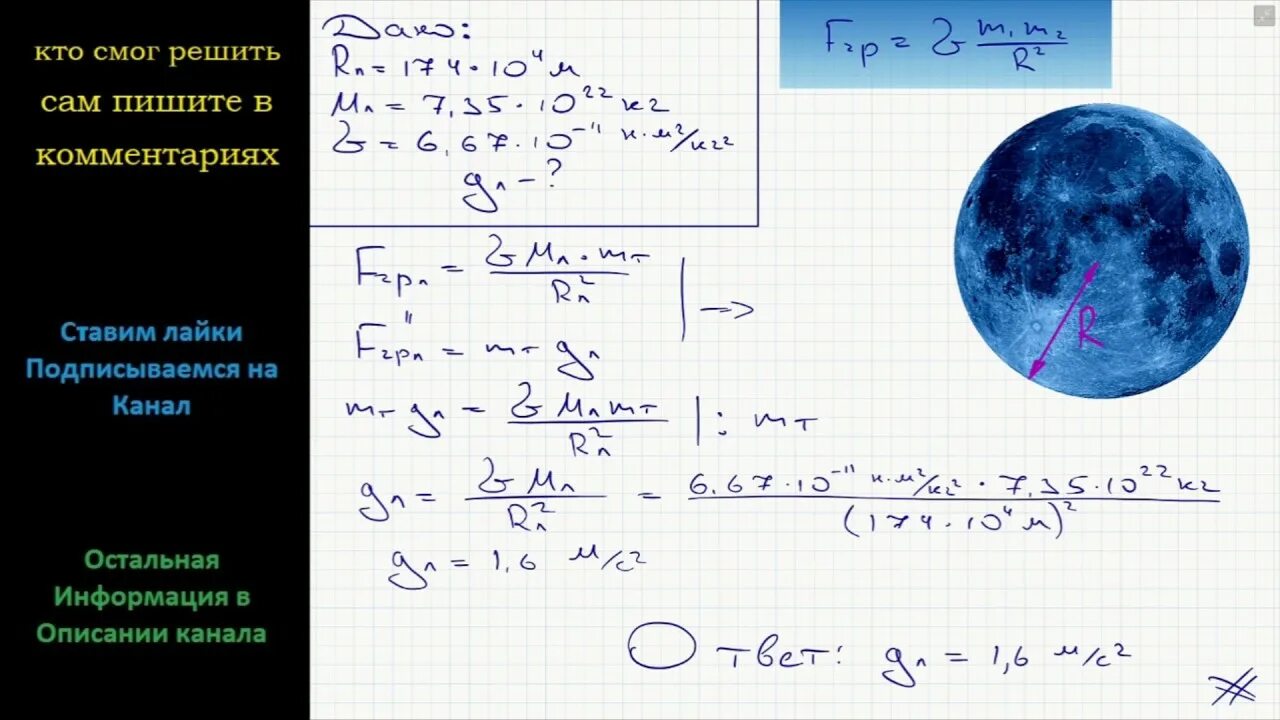 кто смог решить
сам пишите в
комментариях
Ставим лайки
Подписываемся на
Канал
Остальная
Информация в
Описании канала
Дано:
Rл = 174 · 10⁴ м
Mл = 7,35 · 10²² кг
G = 6,67 · 10⁻¹¹ н·м²/кг²
gл – ?
Fгр = G m₁m₂/R²
Fгрл = G Mл · mт/Rл² | →
"
Fгрл = mт gл
mт gл = G Mл mт/Rл² | : mт
gл = G Mл/Rл² = 6.67 · 10⁻¹¹ н·м²/кг² · 7,35 · 10²² кг/(174 · 10⁴ м)²
gл = 1,6 м/с²
Ответ: gл = 1,6 м/с²
R